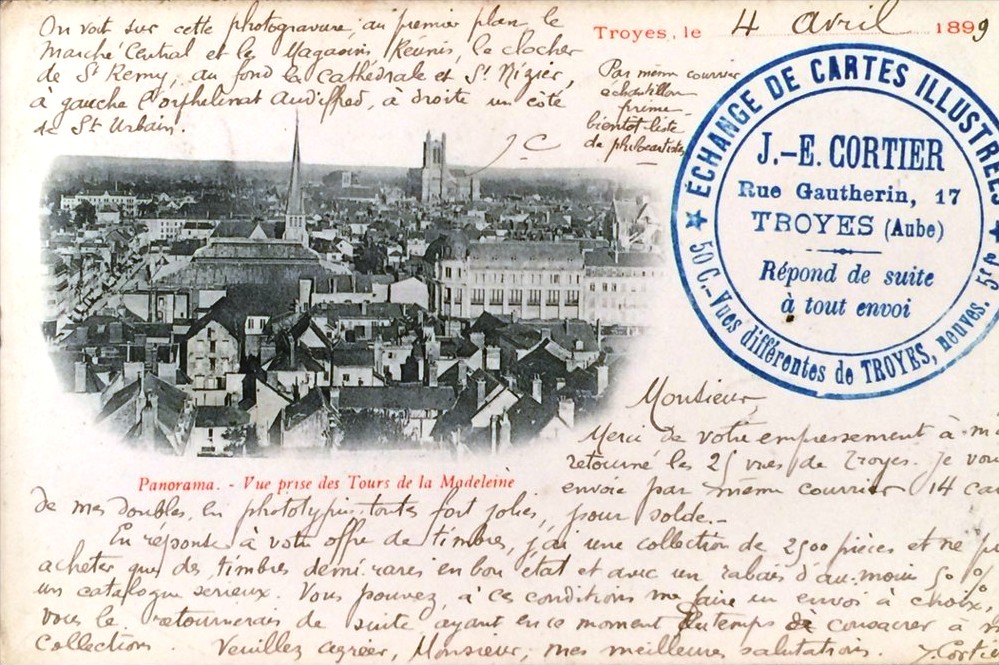 On voit sur cette photogravure, au premier plan le
Marché Central et les Magasins Réunis, le clocher
de St Remy, au fond la Cathédrale et St Nizier,
à gauche l'orphelinat Audiffred, à droite un côté
de St Urbain.
J C
Troyes, le 4 Avril 1899
Par même courrier
échantillon
prime
bientôt liste
de philocartistes
ÉCHANGE DE CARTES ILLUSTRÉES
J.-E. CORTIER
Rue Gautherin, 17
TROYES (Aube)
Répond de suite
à tout envoi
50 C.-Vues différentes de TROYES, neuves. 5 fr
Panorama. - Vue prise des Tours de la Madeleine
Monsieur,
Merci de votre empressement à m'
retourné les 25 vues de Troyes. Je vou
envoie par même courrier 14 ca
de mes doubles, en phototypie toutes fort jolies, pour solde.-
En réponse à votre offre de timbres, j'ai une collection de 2500 pièces et ne p
acheter que des timbres demi-rares en bon état et avec un rabais d'au-moins 50 %
un catalogue serieux. Vous pouvez, à ces conditions me faire un envoi à choix,
vous le retournerais de suite, ayant en ce moment du temps de consacrer à m
collection. Veuillez agréer, Monsieur, mes meilleures salutations. J. Cortie